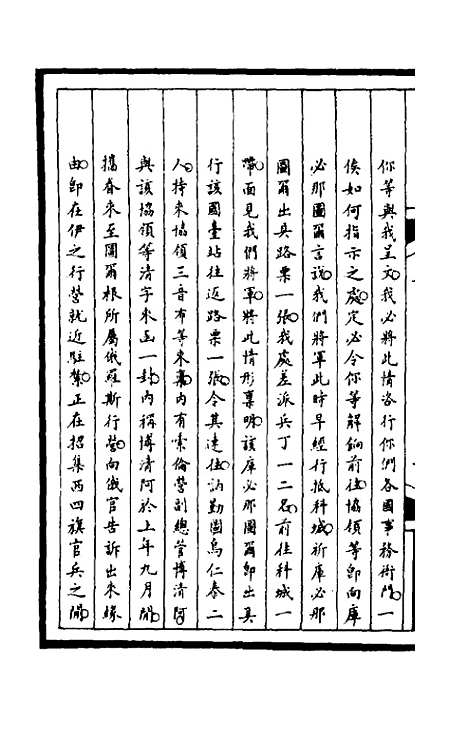 你等與我呈文我必將此情咨行你們各國事務衙門一
俟如何指示之處定必令你等解餉前往協領等卽向庫
必那圖爾言說我們將軍此時早經行抵科城祈庫必那
圖爾出具路票一張我處差派兵丁一二名前往科城一
帶面見我們將軍將此情形稟明該庫必那圖爾卽出具
行該國臺站往返路票一張令其速往訥勤圖烏仁泰二
人持來協領三音布等來稟內有索倫營副總管博清阿
與該協領等清字來函一封內稱博清阿於上年九月間
攜眷來至圖爾根所屬俄羅斯行營向俄官告訴出來緣
由卽在伊之行營就近駐紮正在招集西四旗官兵之間